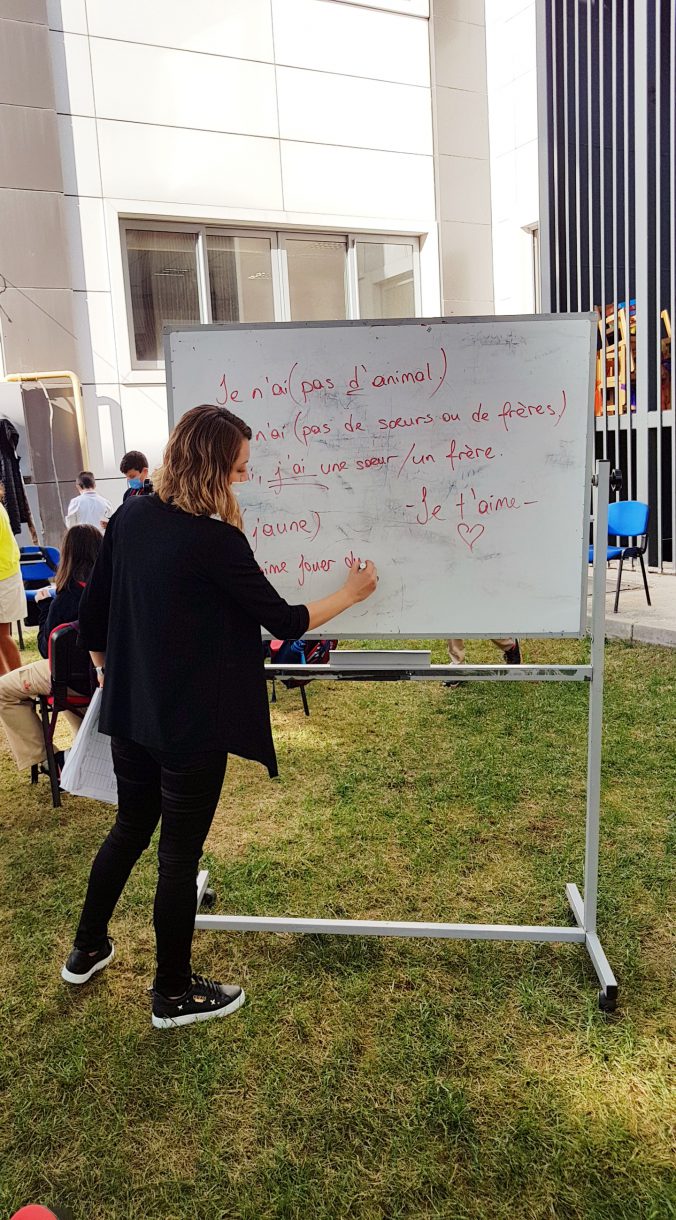 Je n'ai (pas d'animal)
n'ai (pas de sœurs ou de frères)
i, j'ai une sœur / un frère.
jaune)
- Je t'aime -
aime jouer